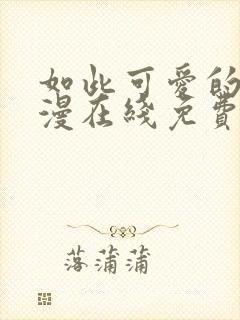 如此可爱的
漫在线免费
落蒲蒲